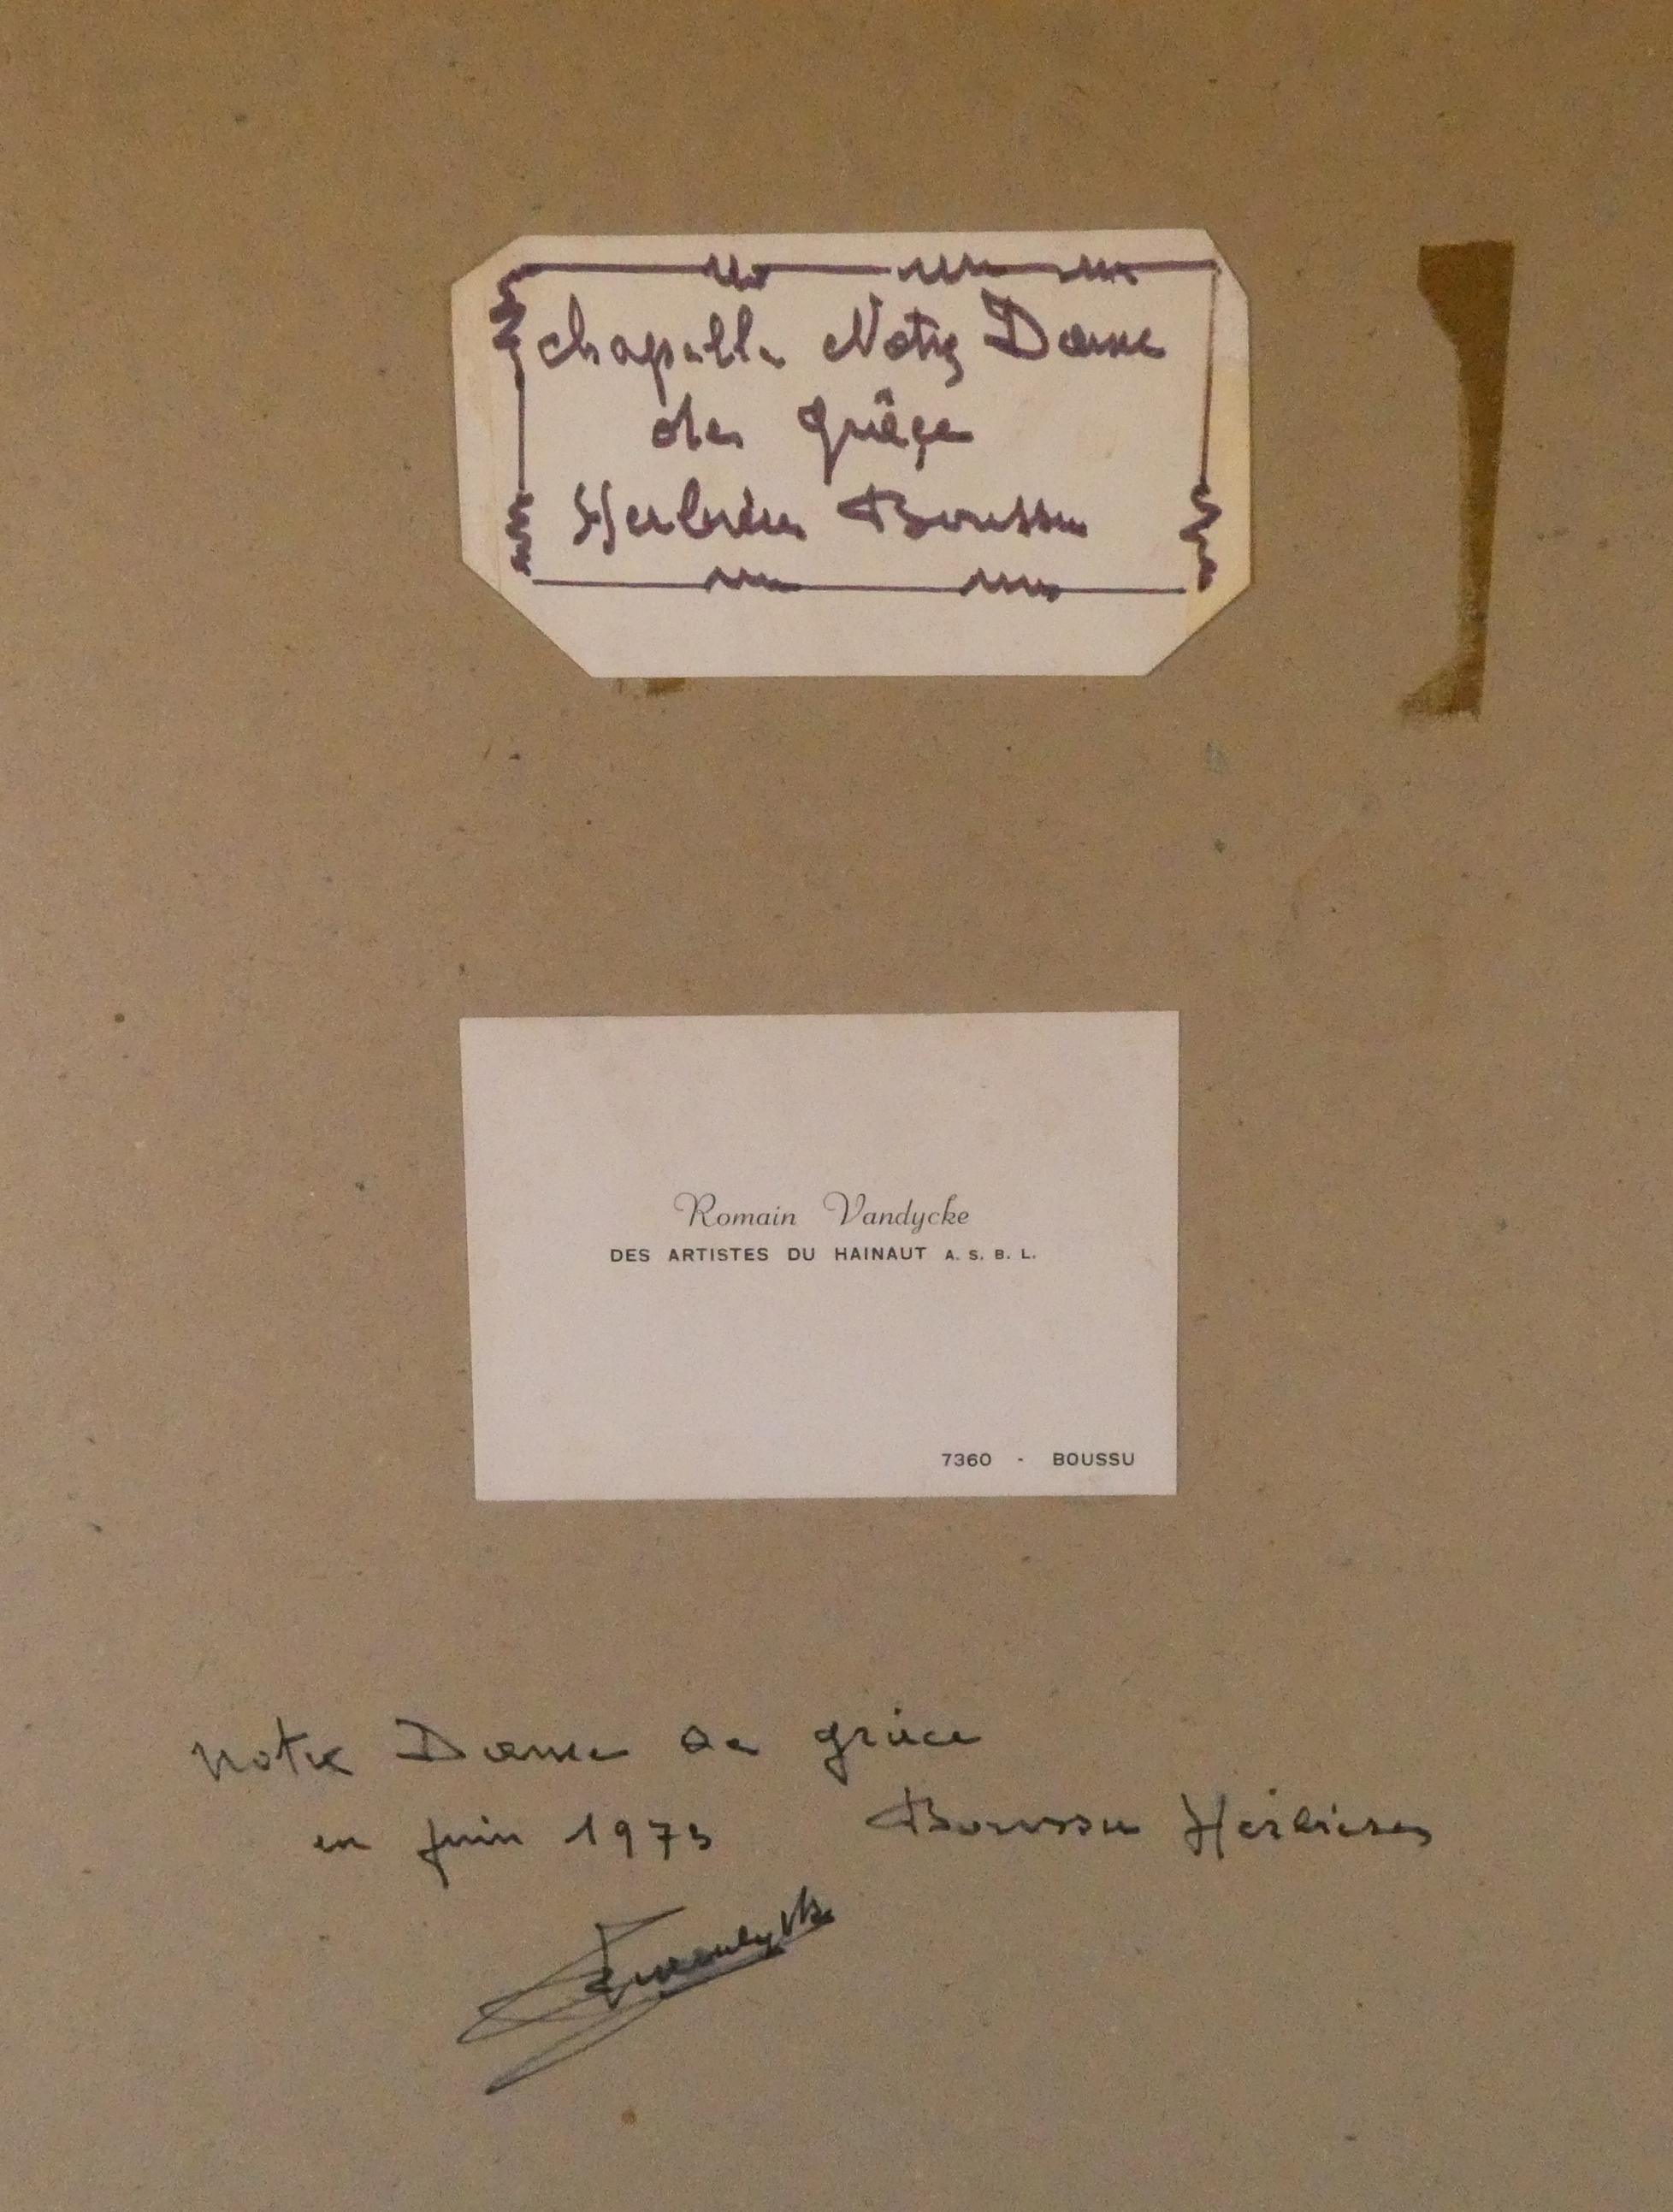 Chapelle Notre Dame
des Grâçe
Herbières Boussu
Romain Vandycke
DES ARTISTES DU HAINAUT A. S. B. L.
7360 - BOUSSU
Notre Dame de grâce
en juin 1973 Boussu Herbieres